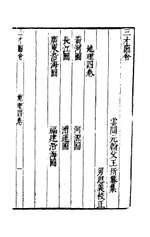 三才圖會
雲間元翰父王圻纂集
男思義校正
地理四卷
黃河圖
河源圖
長江圖
漕運圖
廣東沿海圖
福建沿海圖
三才圖會
地理四卷